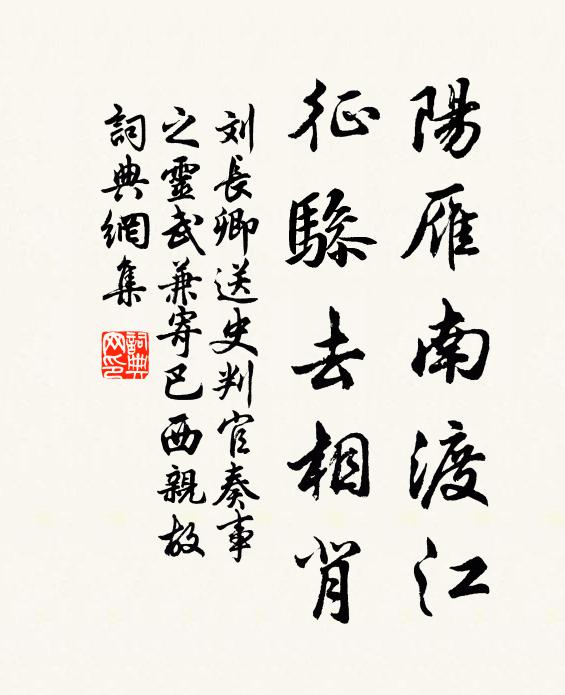 陽雁南渡江
征驂去相背
刘長卿送史判官奏事
之靈武兼寄巴西親故
詞典網集
詞典
网印